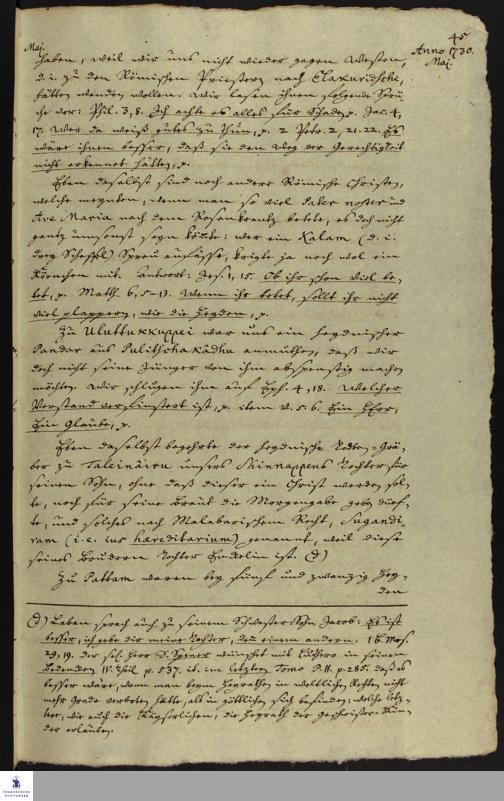 45
Maj.
Anno 1730.
Maj.
haben, weil wir uns nicht wieder gegen Westen,
d. i. zu den Römischen Priestern nach Elakuridschi,
hätten wenden wollen. Wir lasen ihnen folgende Sprü-
che vor: Phil. 3, 8. Ich achte es alles für Schaden p. Jac. 4,
17. Wer da weiß gutes zu thun, p. 2 Petr. 2, 21. 22. Es
wäre ihnen besser, daß sie den Weg der Gerechtigkeit
nicht erkennet hätten, p.
Eben daselbst sind noch andere Römische Christen,
welche meynten, wenn man so viel Pater noster und
Ave Maria nach dem Rosenkrantz betete, es doch nicht
gantz umsonst seyn könte: wer ein Kalam (d. i.
drey Scheffel) Spreu auffasse, kriegte ja noch wol ein
Körnchen mit. Antwort: Jes. 1, 15. Ob ihr schon viel be-
tet, p. Matth. 6, 5-13. Wenn ihr betet, sollt ihr nicht
viel plappern, wie die Heyden, p.
Zu Uluttukkuppei war uns ein heydnischer
Pandar aus Pulihschakádhu anmuthen, daß wir
doch nicht seine Jünger von ihm abspenstig machen
möchten. Wir schlugen ihm auf Eph. 4, 18. Welcher
Verstand verfinstert ist, p. item v. 5. 6. Ein HErr,
Ein Glaube, p.
Eben daselbst begehrte der heydnische Todten-Grä-
ber zu Taleinâiru unsers Schinnappens Tochter für
seinen Sohn, ohne daß dieser ein Christ werden sol-
te, noch für seine Braut die Morgengabe geben dürf-
te, und solches nach Malabarischem Recht, Sugandi-
ram (i. e. ius hæreditarium) genannt, weil diese
seines Brudern Tochter Enckelin ist. (d)
Zu Pattam waren bey fünf und zwanzig Hey-
den
(d) Laban sprach auch zu seinem Schwester-Sohn Jacob: Es ist
besser, ich gebe dir meine Tochter, denn einem andern. 1 B. Mos.
29, 19. der sel. Herr D. Spener wünschet mit Luthero in seinen
Bedencken IV. Theil p. 537. it. im letzten Tomo P. II. p. 285. daß es
besser wäre, wenn man beym Heyrathen in weltlichen Rechten nicht
mehr Grade verboten hätte, als in göttlichen sich befinden: welche letz-
tere, wie auch die Käyserlichen, die Heyrath der Geschwister-Kin-
der erlauben.
FRANCKESCHE
STIFTUNGEN